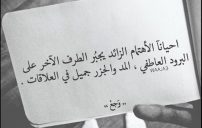 احيانآ الأهتمام الزائد يجبُر الطرف الآخر على
البرود العاطفي ، المد والجزر جميل في العلاقات .
- وَجعْ -